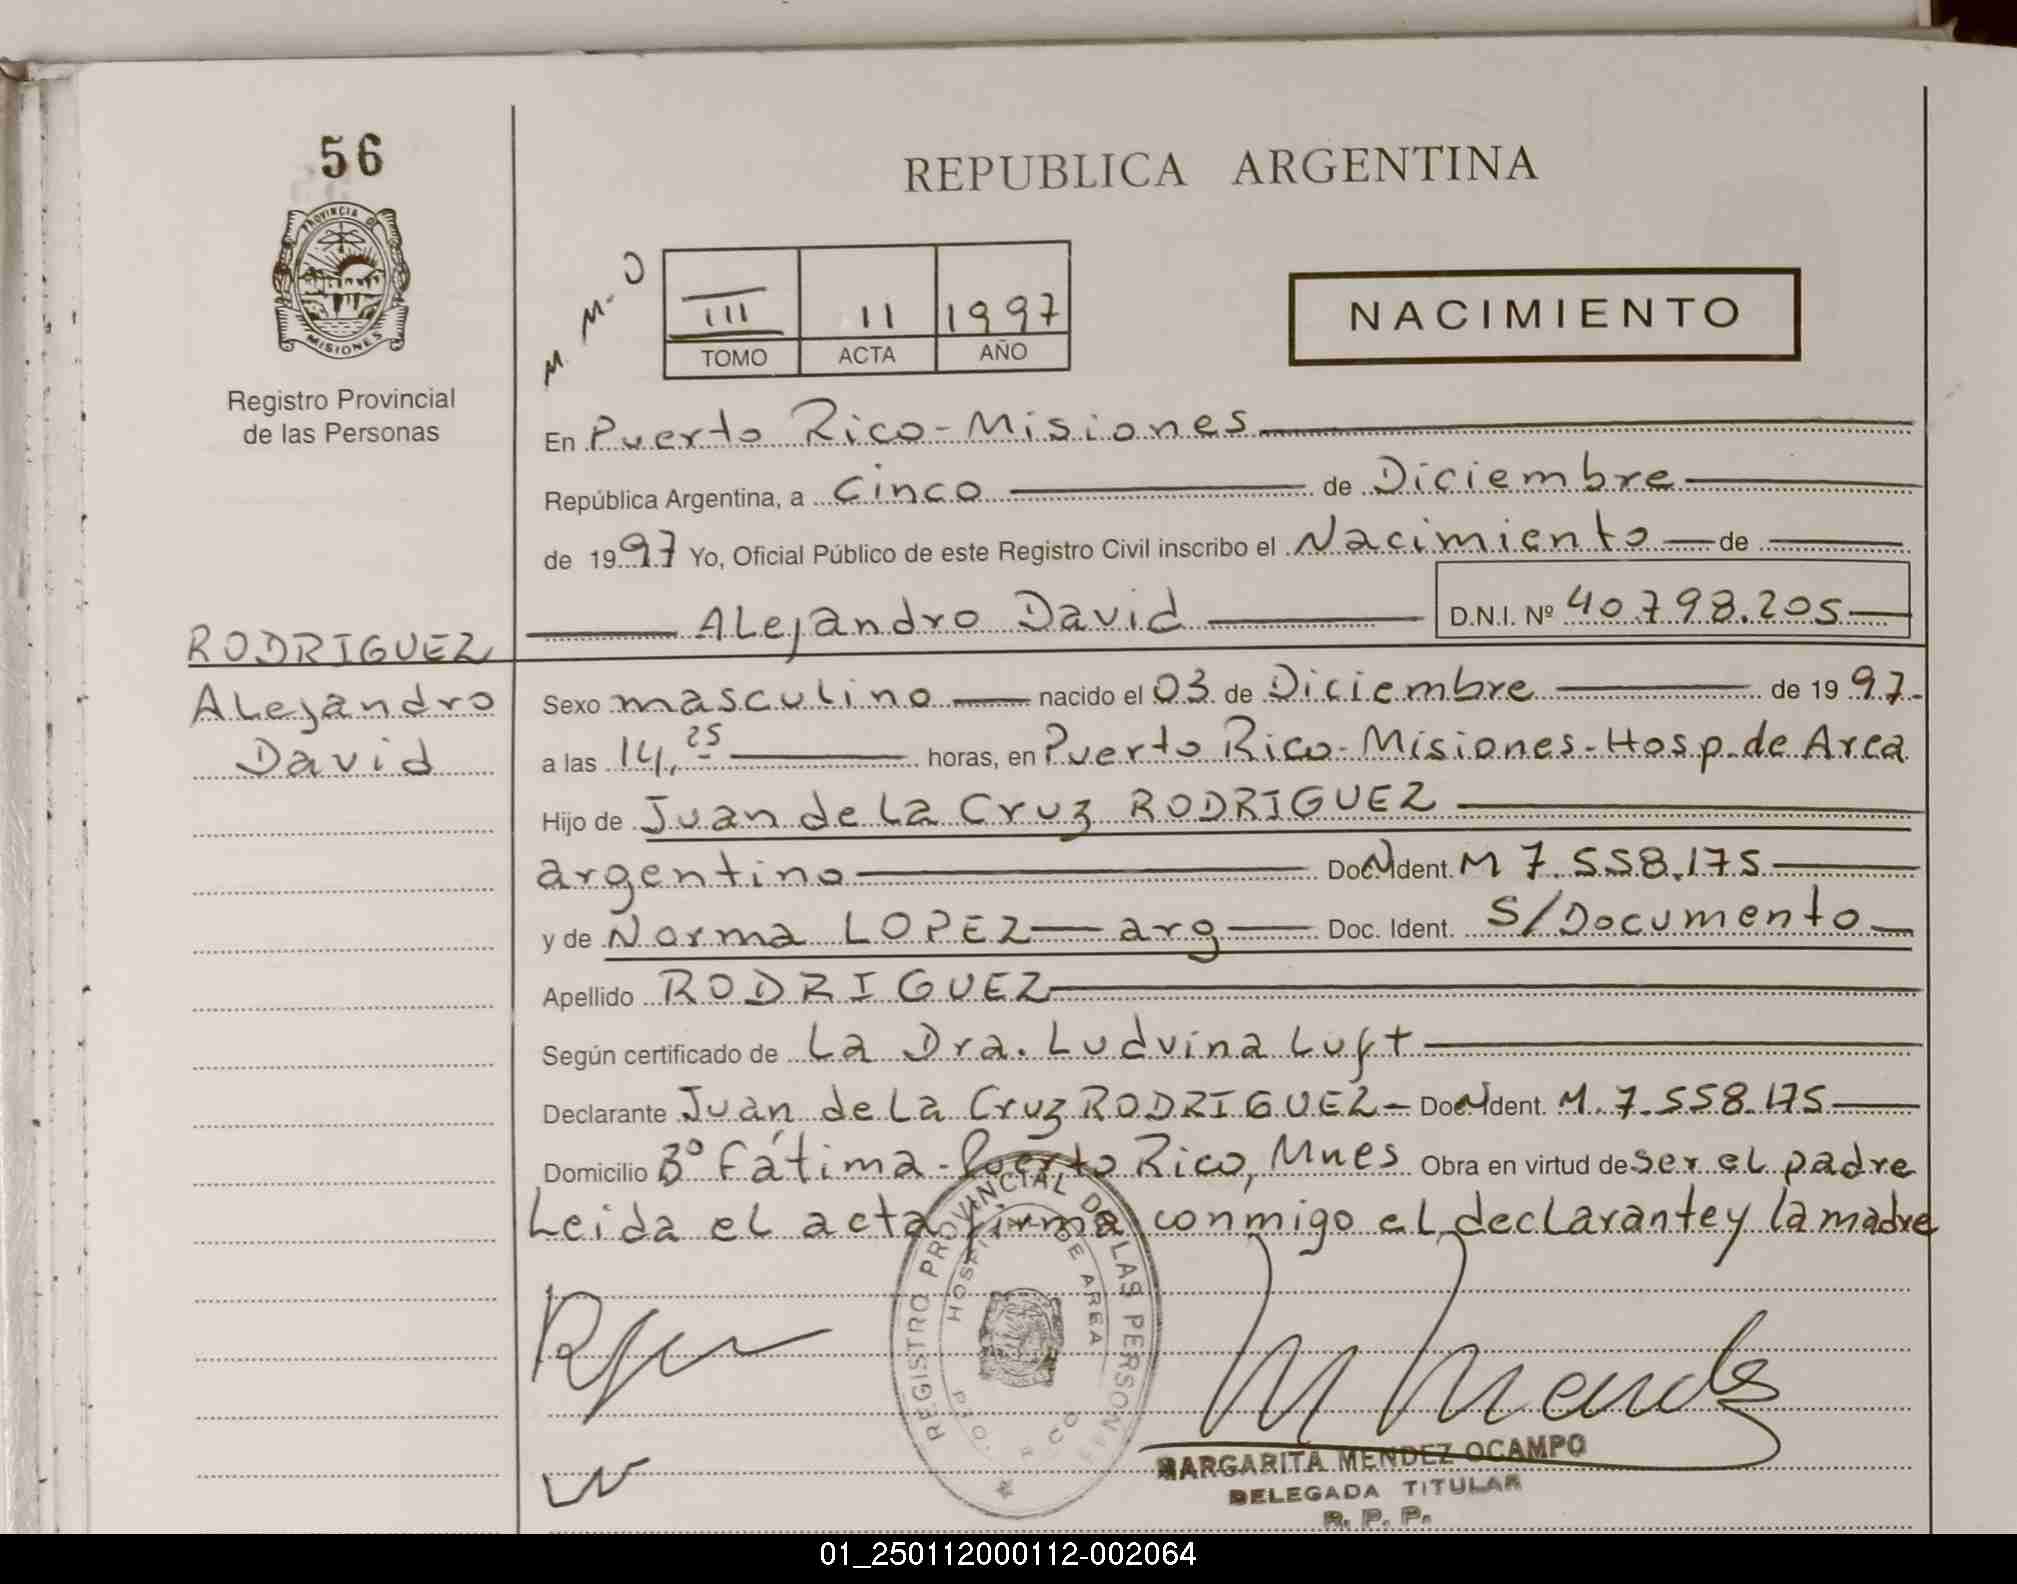 56
PROVINCIA D
MISIONES
Registro Provincial
de las Personas
REPUBLICA ARGENTINA
M. M. O
III 11 1997
TOMO ACTA AÑO
NACIMIENTO
En Puerto Rico - Misiones
República Argentina, a Cinco de Diciembre
de 1997 Yo, Oficial Público de este Registro Civil inscribo el Nacimiento de
Alejandro David D.N.I. Nº 40.798.205
RODRIGUEZ
Alejandro
David
Sexo masculino nacido el 03 de Diciembre de 1997.
a las 14,25 horas, en Puerto Rico - Misiones - Hosp. de Area
Hijo de Juan de la Cruz RODRIGUEZ
argentino Doc. Ident. M 7.558.175
y de Norma LOPEZ arg Doc. Ident. S/Documento
Apellido RODRIGUEZ
Según certificado de La Dra. Ludvina Luft
Declarante Juan de la Cruz RODRIGUEZ - Doc. Ident. M. 7.558.175
Domicilio Bº Fátima - Puerto Rico, Mnes Obra en virtud de ser el padre
Leida el acta firma conmigo el declarante y la madre
REGISTRO PROVINCIAL DE LAS PERSONAS
HOSPITAL DE AREA
PTO. RICO
M Mendez
MARGARITA MENDEZ OCAMPO
DELEGADA TITULAR
R. P. P.
01_250112000112-002064